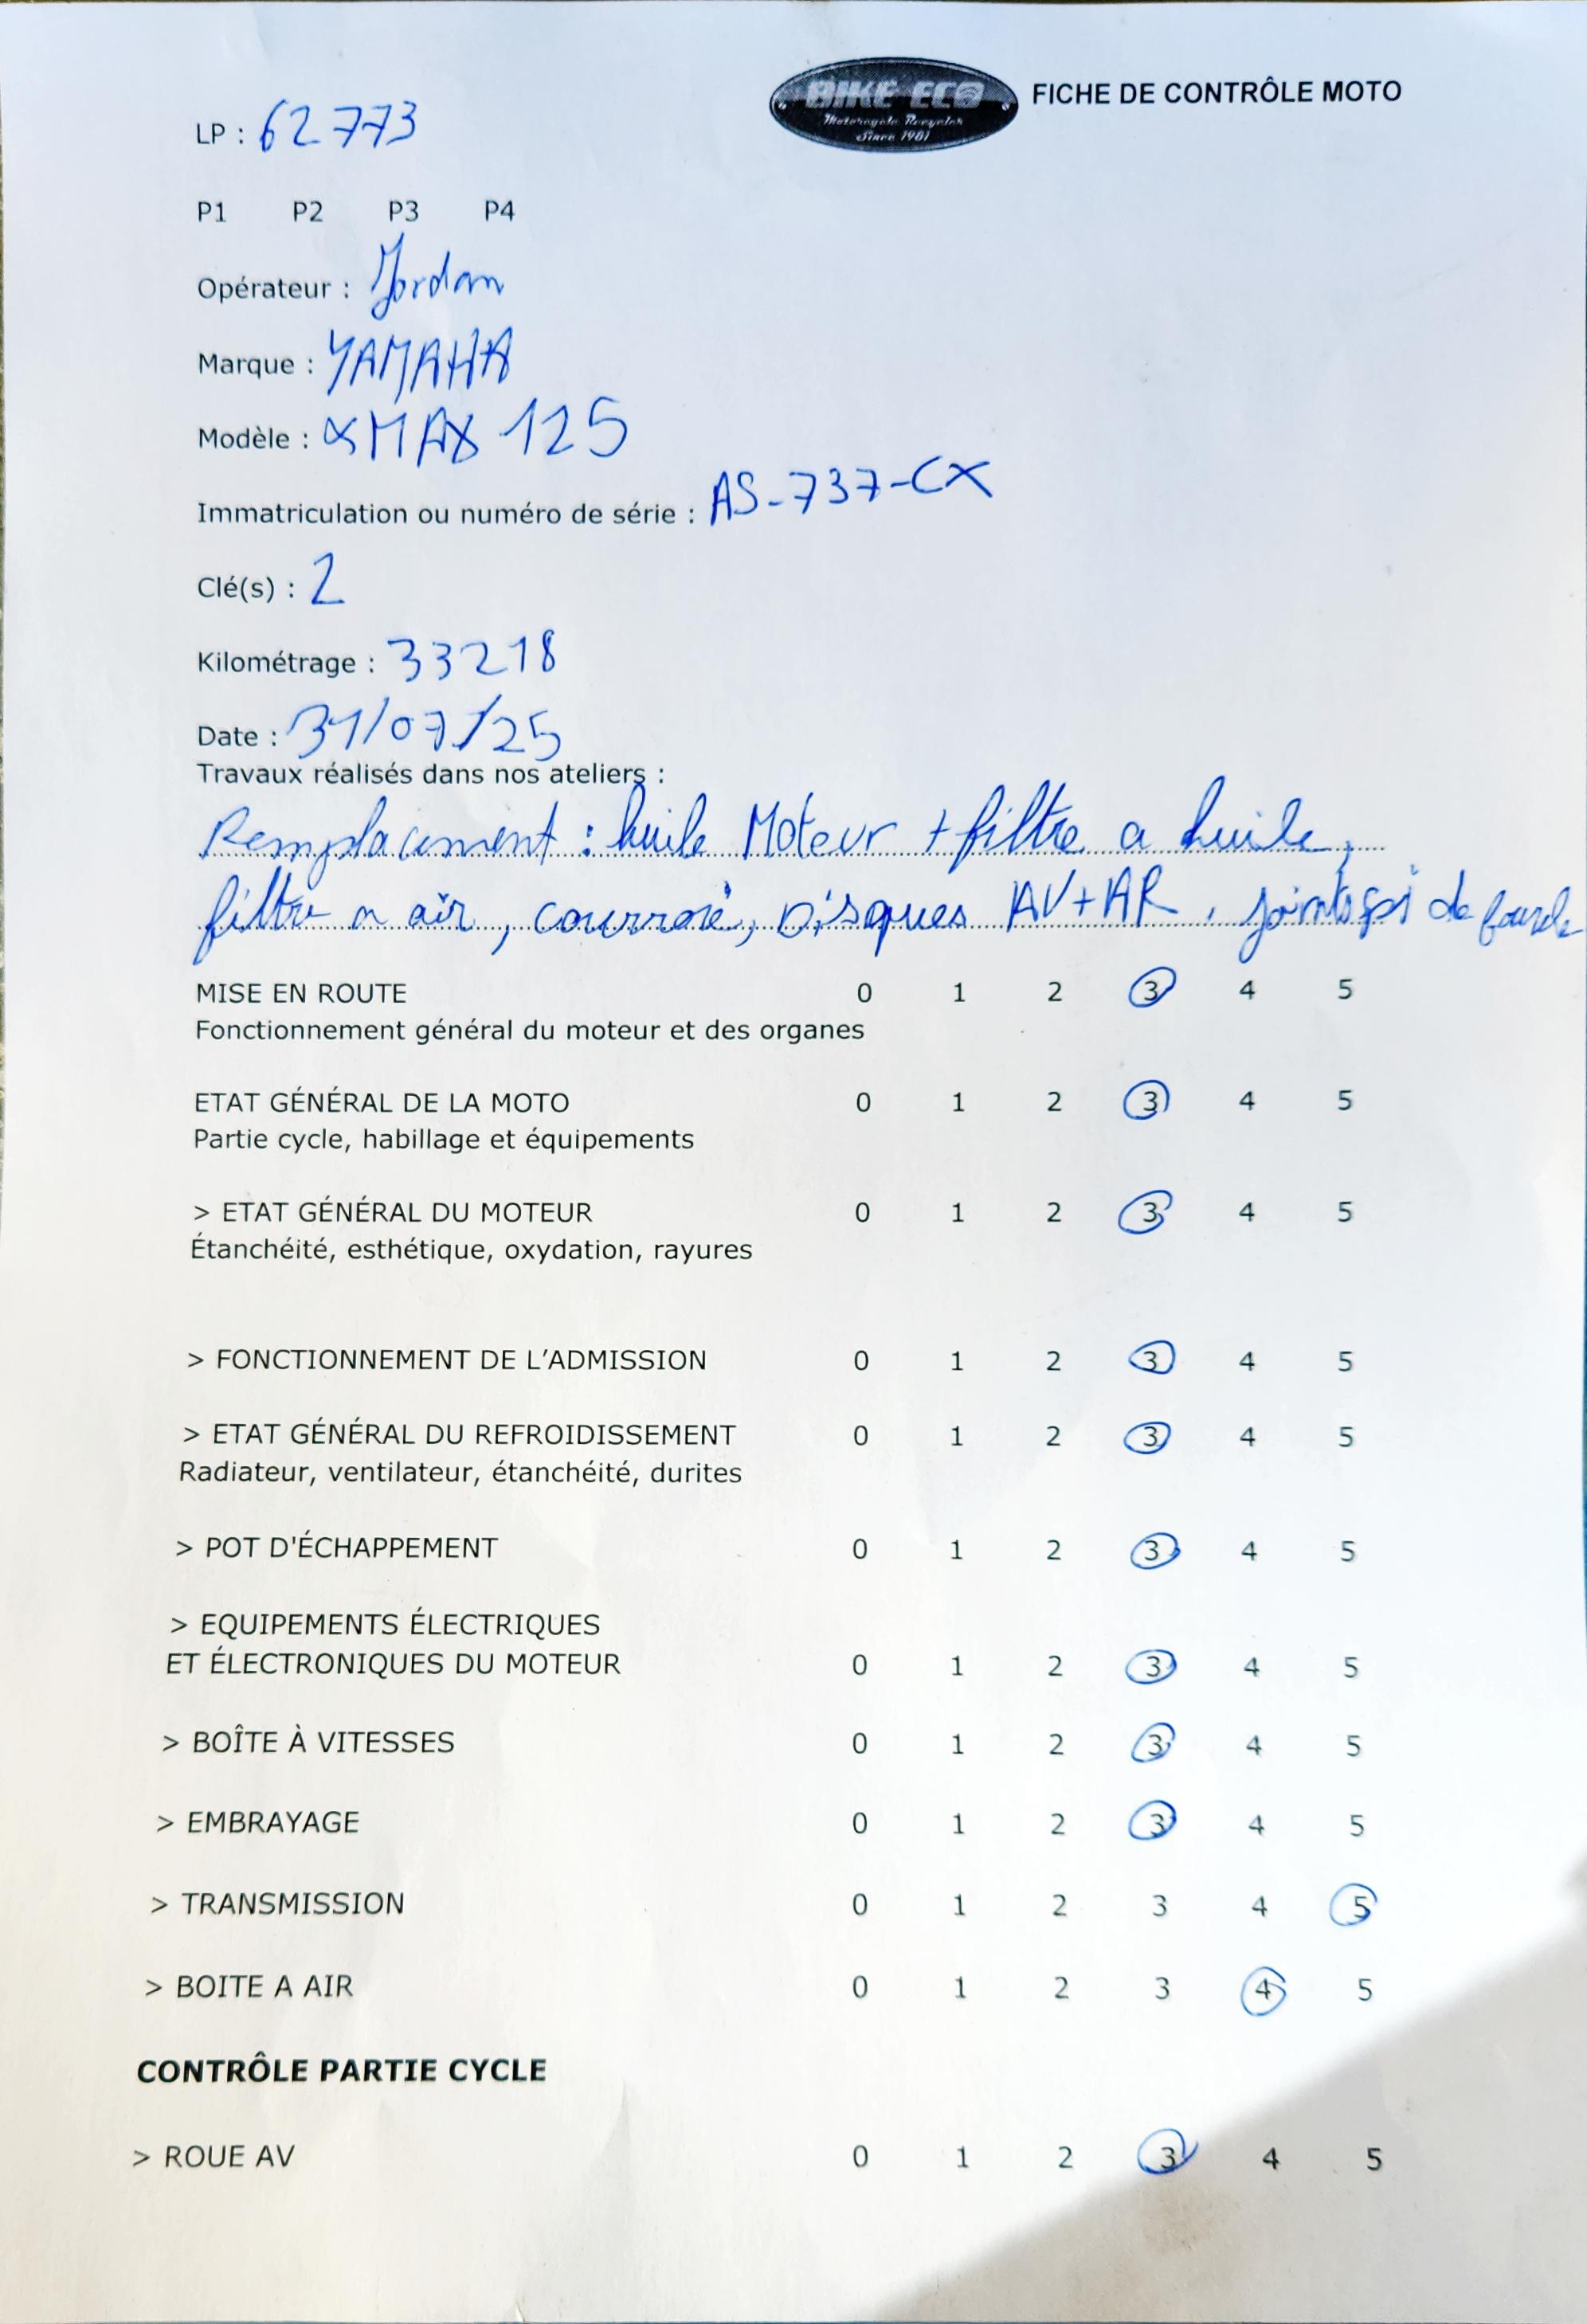 BIKE ECO
Motorcycle Recycler
Since 1981
FICHE DE CONTRÔLE MOTO
LP : 62773
P1 P2 P3 P4
Opérateur : Jordan
Marque : YAMAHA
Modèle : XMAX 125
Immatriculation ou numéro de série : AS-737-CX
Clé(s) : 2
Kilométrage : 33218
Date : 31/07/25
Travaux réalisés dans nos ateliers :
Remplacement : huile Moteur + filtre a huile,
filtre a air, courroie, Disques AV+AR, joints spi de fourche
MISE EN ROUTE 0 1 2 3 4 5
Fonctionnement général du moteur et des organes
ETAT GÉNÉRAL DE LA MOTO 0 1 2 3 4 5
Partie cycle, habillage et équipements
> ETAT GÉNÉRAL DU MOTEUR 0 1 2 3 4 5
Étanchéité, esthétique, oxydation, rayures
> FONCTIONNEMENT DE L'ADMISSION 0 1 2 3 4 5
> ETAT GÉNÉRAL DU REFROIDISSEMENT 0 1 2 3 4 5
Radiateur, ventilateur, étanchéité, durites
> POT D'ÉCHAPPEMENT 0 1 2 3 4 5
> EQUIPEMENTS ÉLECTRIQUES
ET ÉLECTRONIQUES DU MOTEUR 0 1 2 3 4 5
> BOÎTE À VITESSES 0 1 2 3 4 5
> EMBRAYAGE 0 1 2 3 4 5
> TRANSMISSION 0 1 2 3 4 5
> BOITE A AIR 0 1 2 3 4 5
CONTRÔLE PARTIE CYCLE
> ROUE AV 0 1 2 3 4 5